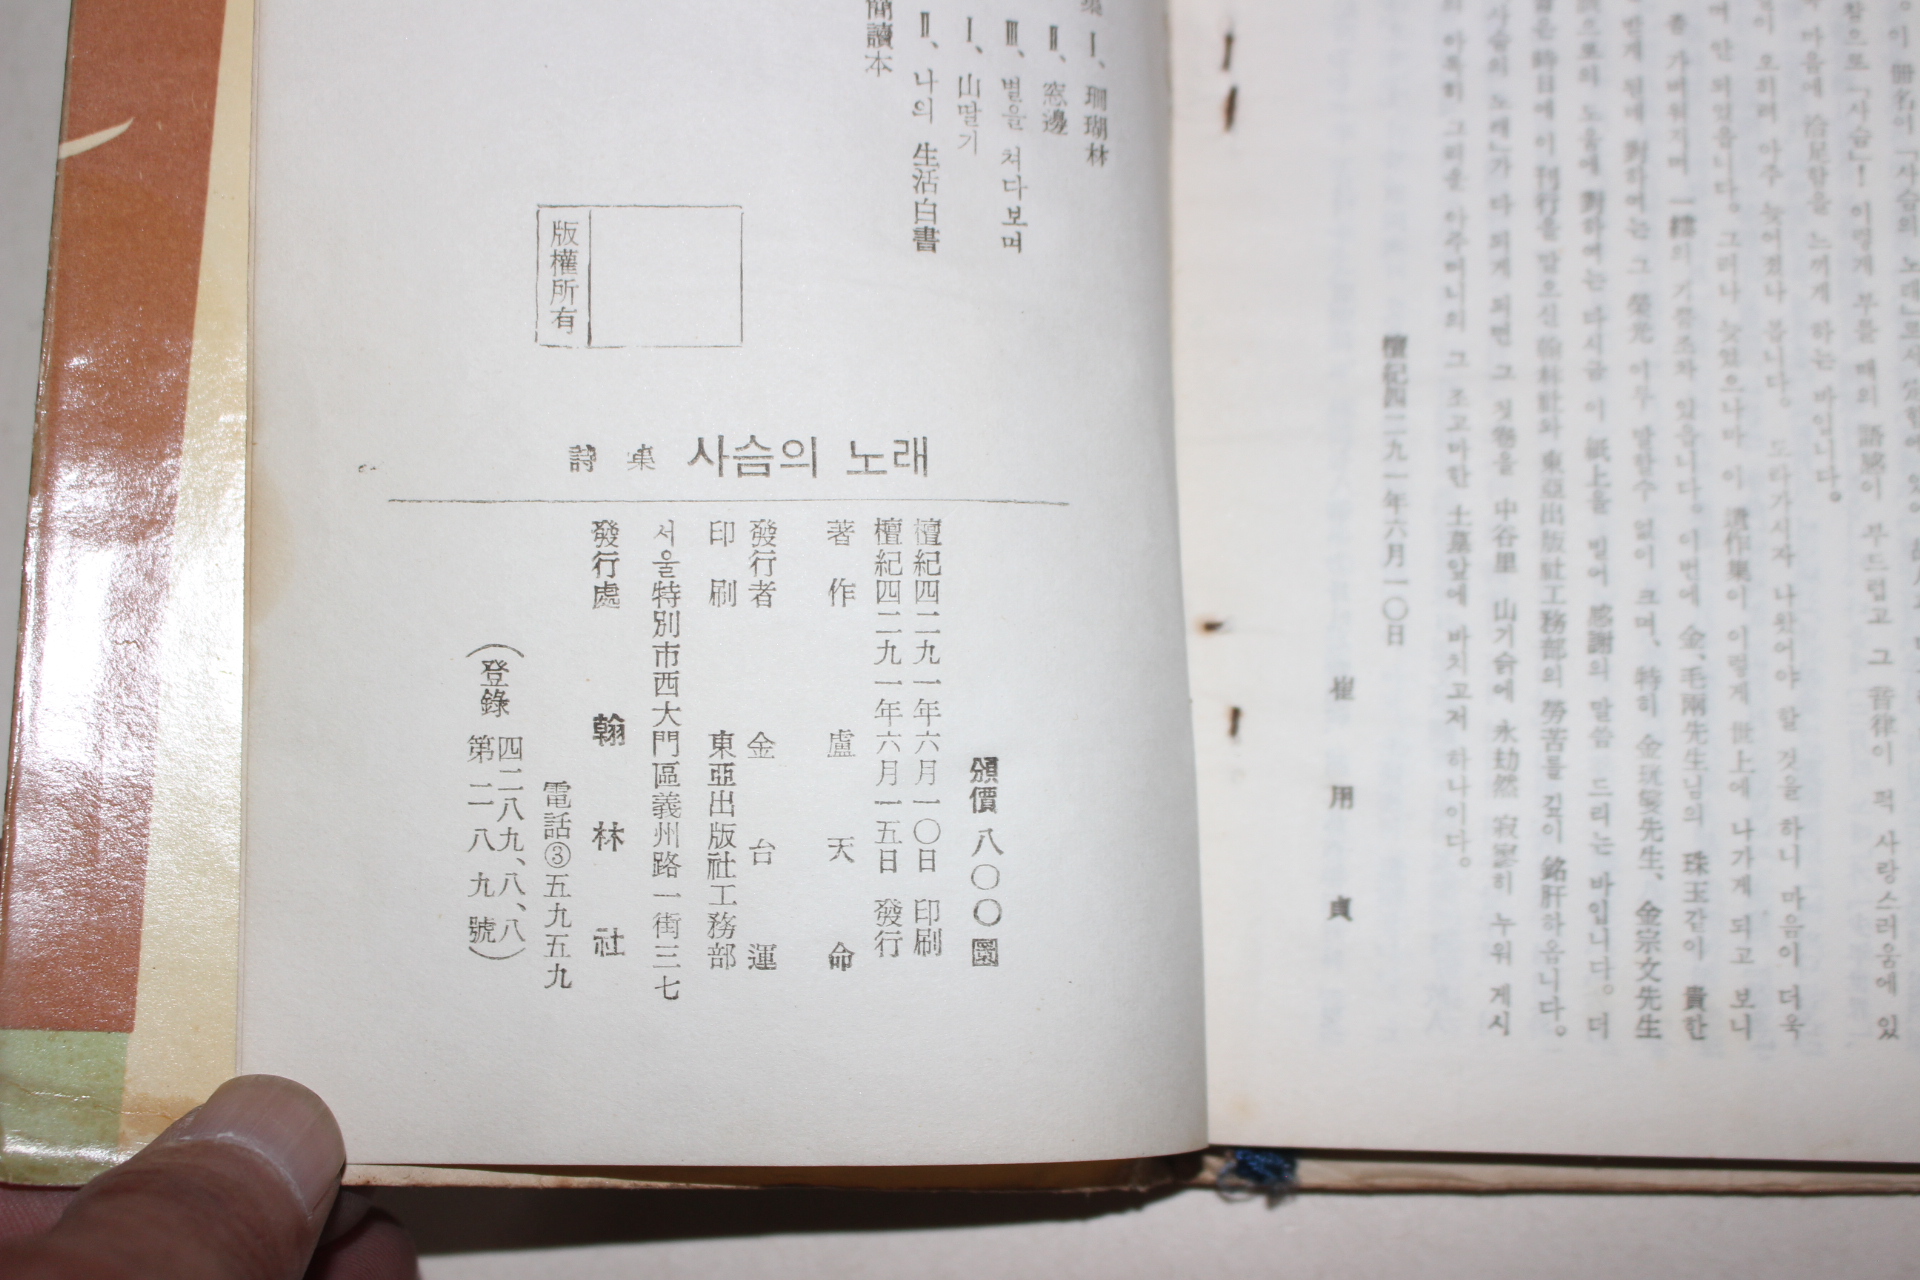 崔用貞
檀紀四二九一年六月一〇日
의 아득히 그리운 아주머니의 그 조고마한 土墓앞에 바치고저 하나이다。
사슴의 노래」가 다 되게 되면 그 첫卷을 中谷里 山기슭에 永劫然 寂寥히 누워 게시
이 刊行을 맡으신 翰林社와 東亞出版社工務部의 勞苦를 깊이 銘肝하옵니다。
으로의 도움에 對하여는 다시금 이 紙上을 빌어 感謝의 말씀 드리는 바입니다。더
받게 됨에 對하여는 그 榮光 이루 말할수 없이 크며、特히 金珖燮先生、金宗文先生
좀 가벼워지며 一種의 기쁨조차 있읍니다。이번에 金、毛兩先生님의 珠玉같이 貴한
여 안 되었읍니다。그러나 늦었으나마 이 遺作集이 이렇게 世上에 나가게 되고 보니
이 오히려 아주 늦어졌나 봅니다。돌아가시자 나왔어야 할 것을 하니 마음이 더욱
마음에 洽足함을 느끼게 하는 바입니다。
참으로「사슴」! 이렇게 부를 때의 語感이 부드럽고 그 音律이 퍽 사랑스러움에 있
이 冊名이「사슴의 노래」로서
Ⅰ、珊瑚林
Ⅱ、窓邊
Ⅲ、별을 쳐다보며
Ⅰ、山딸기
Ⅱ、나의 生活白書
簡讀本
版權所有
詩集 사슴의 노래
頒價 八〇〇圜
檀紀四二九一年六月一〇日 印刷
檀紀四二九一年六月一五日 發行
著作 盧天命
發行者 金台運
印刷 東亞出版社工務部
서울特別市西大門區義州路一街三七
發行處 翰林社
電話③五九五九
(登錄 四二八九、八、八
第二八九號)